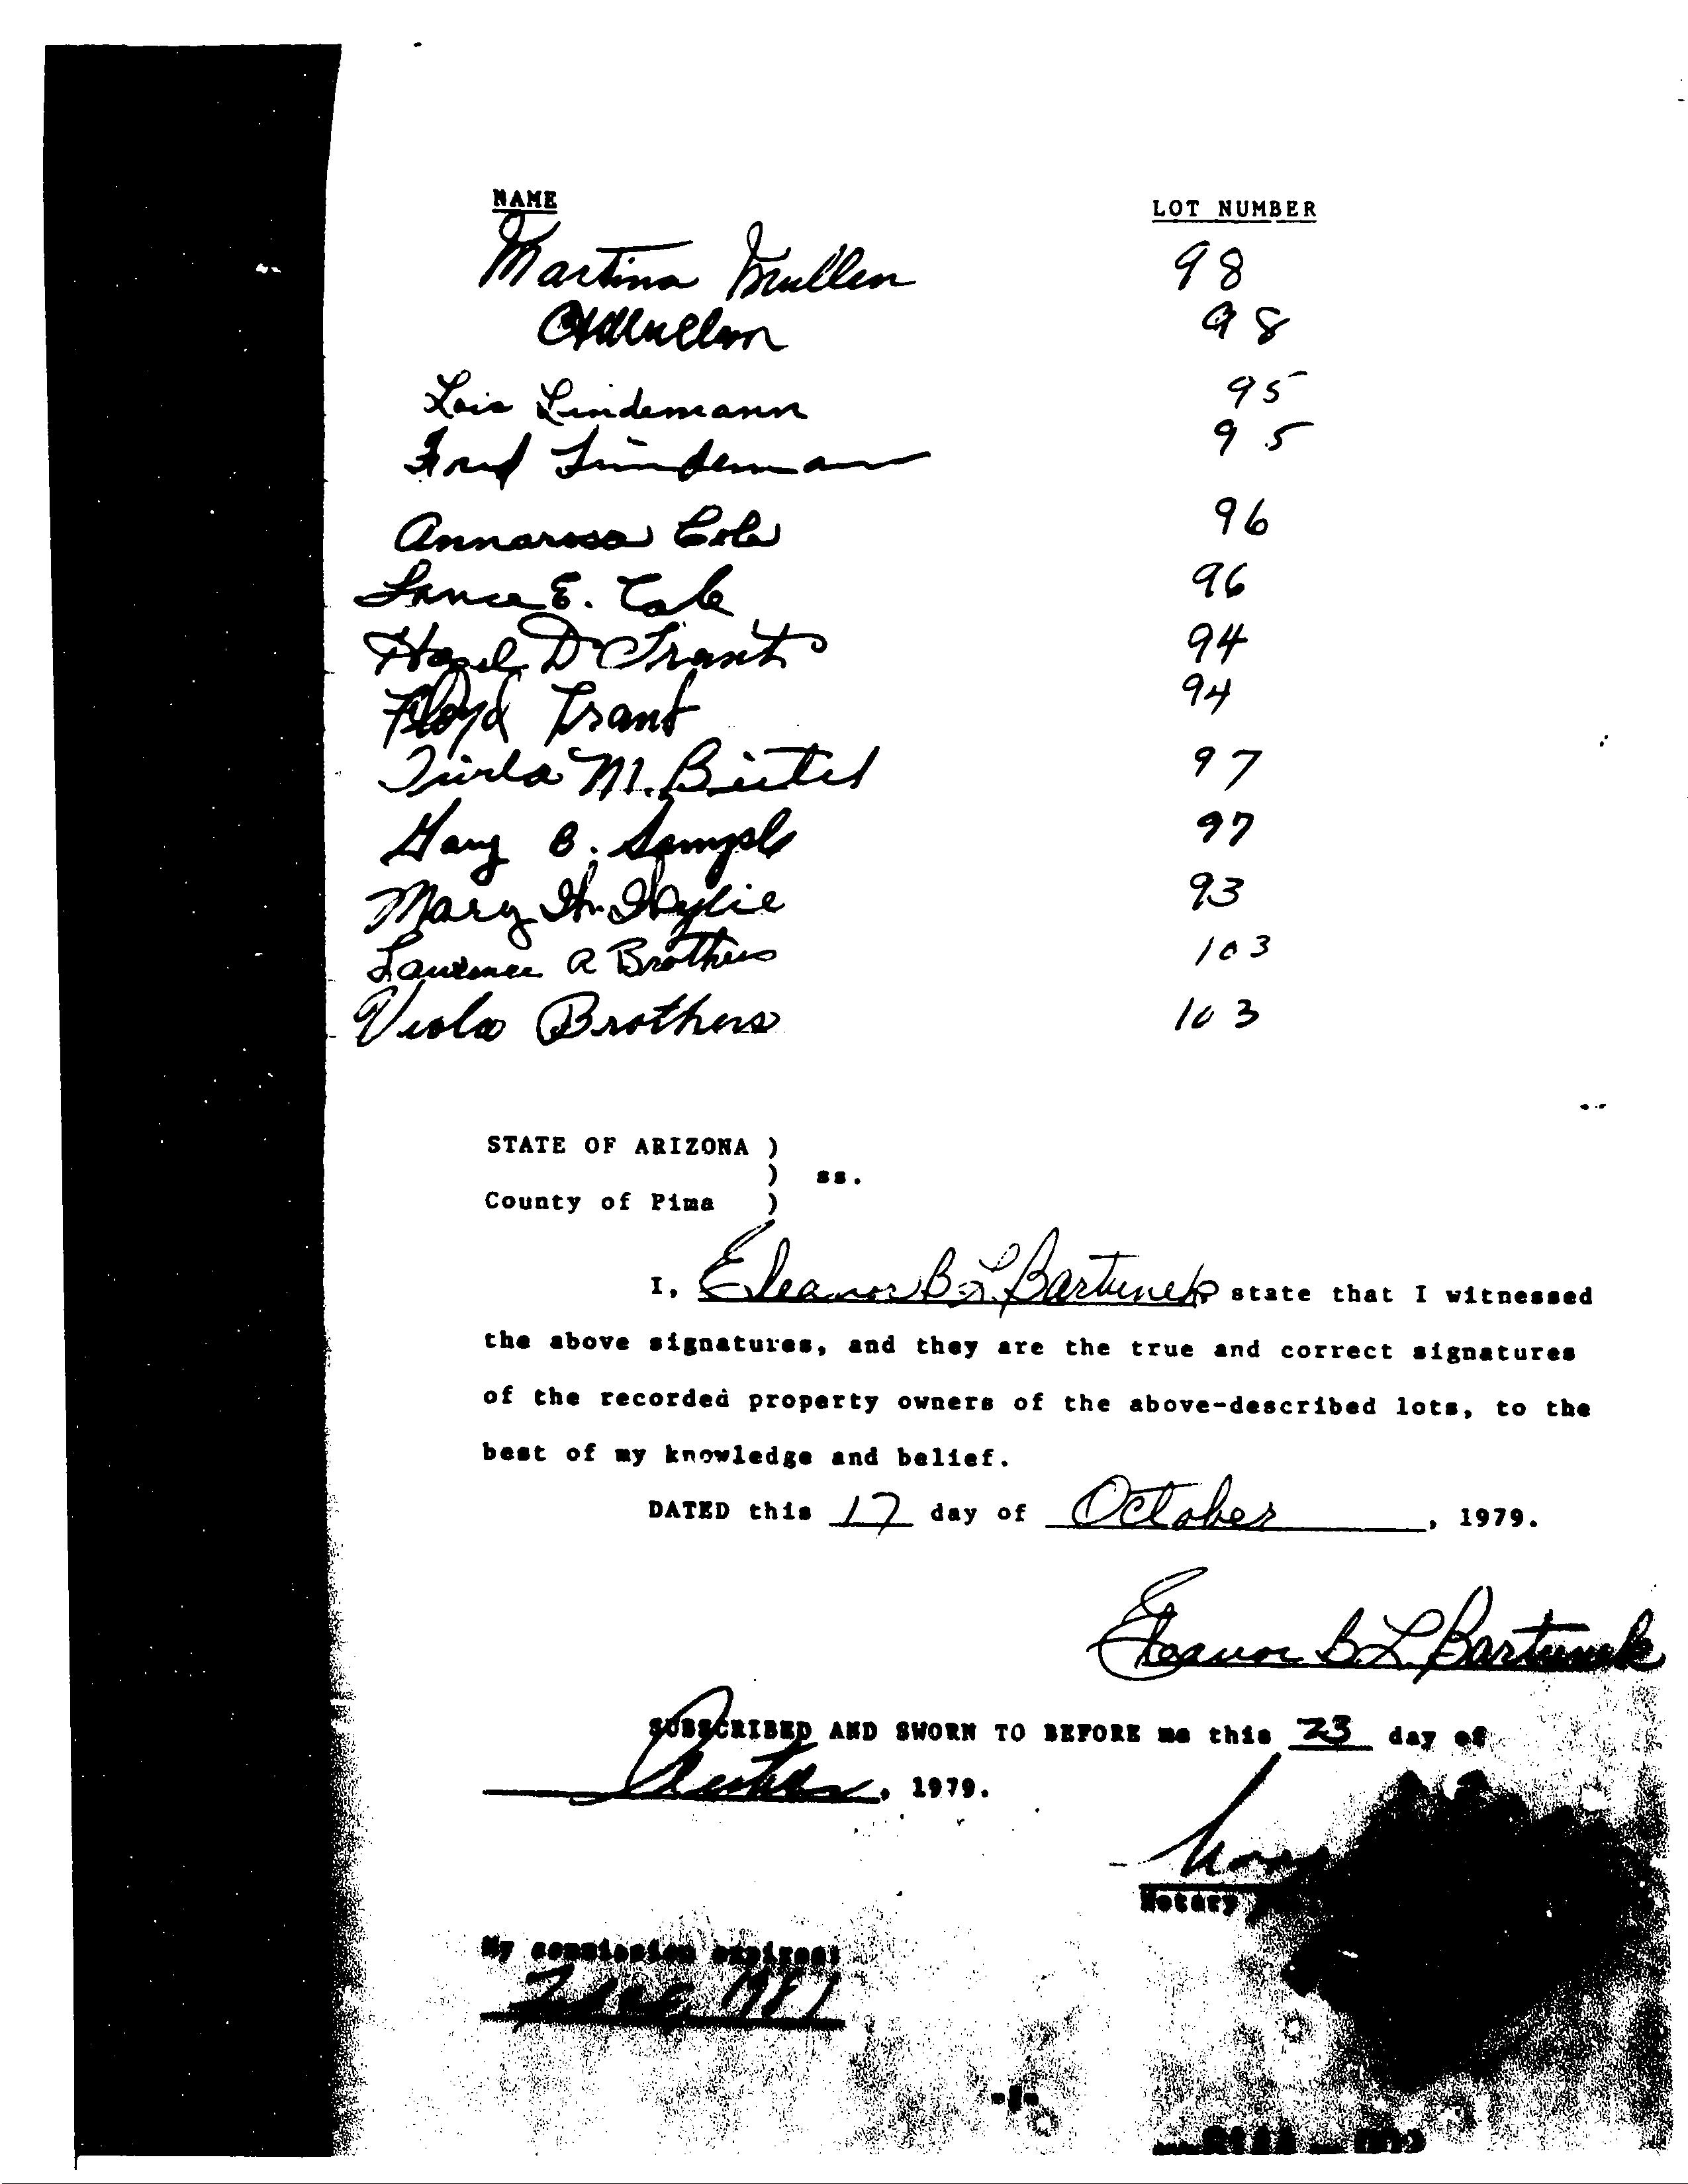 NAME LOT NUMBER
Martina Mullen 98
Mullen 98
Lois Lindemann 95
Fred Lindemann 95
Annarosa Cole 96
Lance E. Cole 96
Hazel D Trant 94
Floyd Trant 94
M. 97
Gary B. Sample 97
Mary 93
Lawrence A Brothers 103
Viola Brothers 103
STATE OF ARIZONA )
) ss.
County of Pima )
I, Eleanor B L Bartunek state that I witnessed
the above signatures, and they are the true and correct signatures
of the recorded property owners of the above-described lots, to the
best of my knowledge and belief.
DATED this 17 day of October, 1979.
Eleanor B L Bartunek
SUBSCRIBED AND SWORN TO BEFORE me this 23 day of
October, 1979.
Notary
My commission expires: